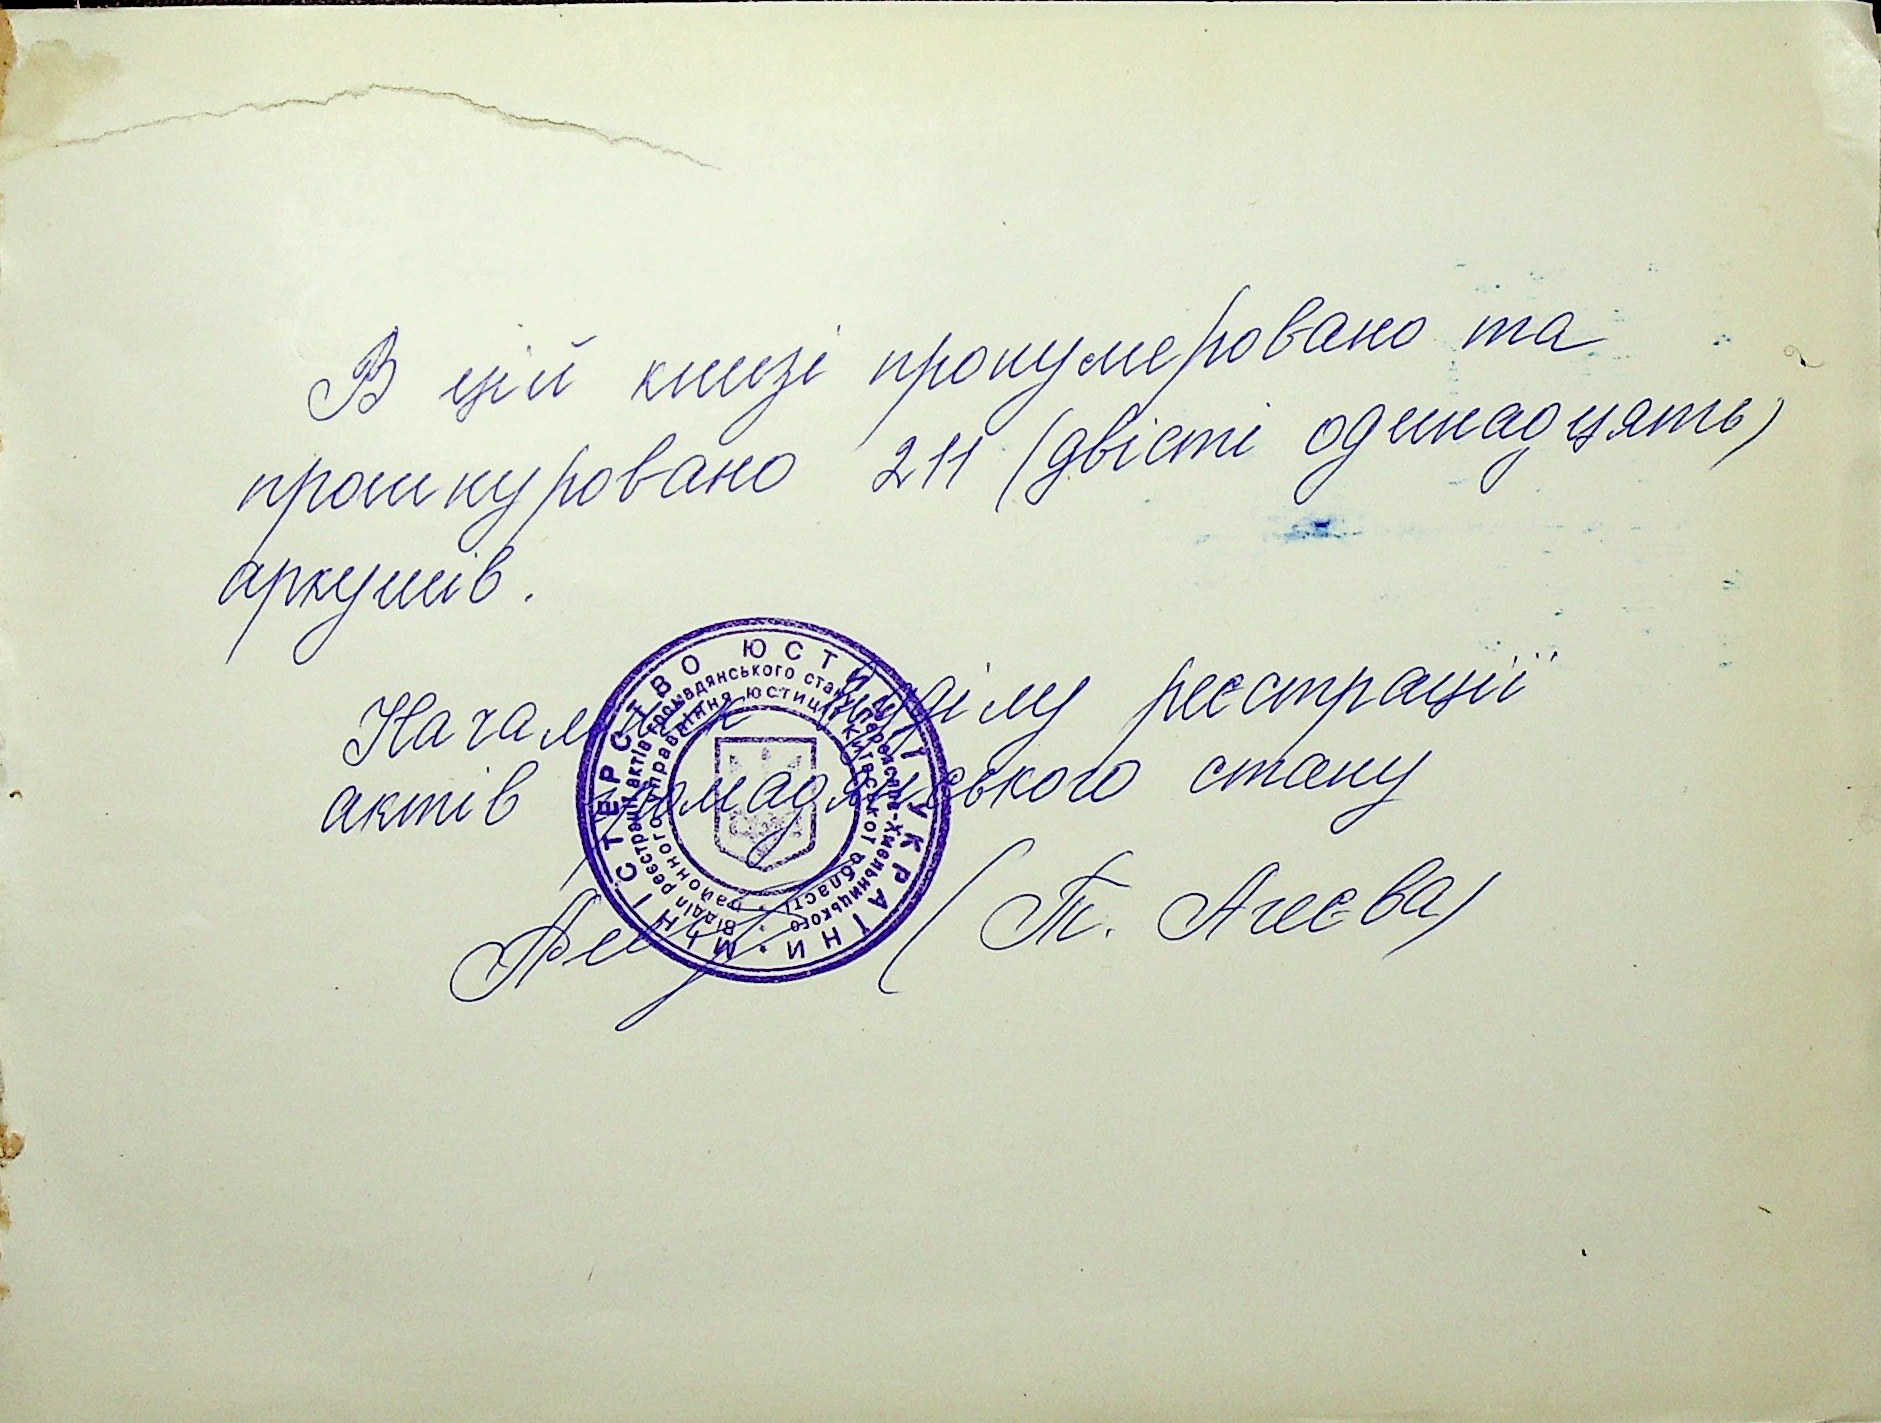 В цій книзі пронумеровано та
прошнуровано 211 (двісті одинадцять)
аркушів.
Начальник відділу реєстрації
актів громадянського стану
(Т. Агеєва)
МІНІСТЕРСТВО ЮСТИЦІЇ УКРАЇНИ
Відділ реєстрації актів громадянського стану Переяслав-Хмельницького
районного управління юстиції Київської області